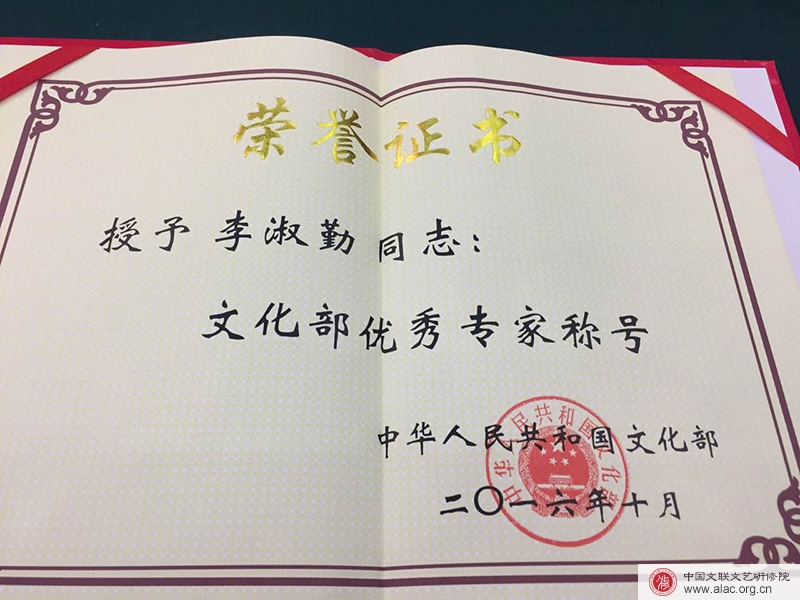 荣誉证书
授予 李淑勤 同志：
文化部优秀专家称号
中华人民共和国文化部
中华人民共和国文化部
二〇一六年十月
中国文联文艺研修院
www.alac.org.cn